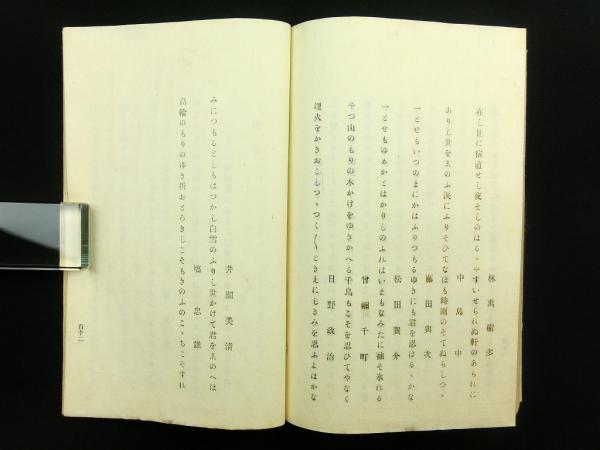 林萬樹多
在し世に宿直せし夜そしのはるゝやすいせられぬ軒のあられに
中島中
ありし世を𛀁のふ涙にふりそひてなほも時雨のそてぬらしつゝ
藤田與次
一とせもいつのまにかはふりつもるゆきにも君を忍はるゝかな
松田賀介
一とせもゆめかとはかりしのふれはいまもなみたに補そ氷れる
曾禰千町
やつ山のもりの木かけをゆきかへる千鳥もこそを忍ひてやなく
日野政治
埋火をかきおこしつゝつく〲ときえにしきみを忍ふよはかな
井關美清
みにつもるとしもはつかし白雪のふりし世かけて君をしのへは
塙忠雄
高輪のもりのゆき折おとろきしこそもきのふのこゝちこそすれ
百十二